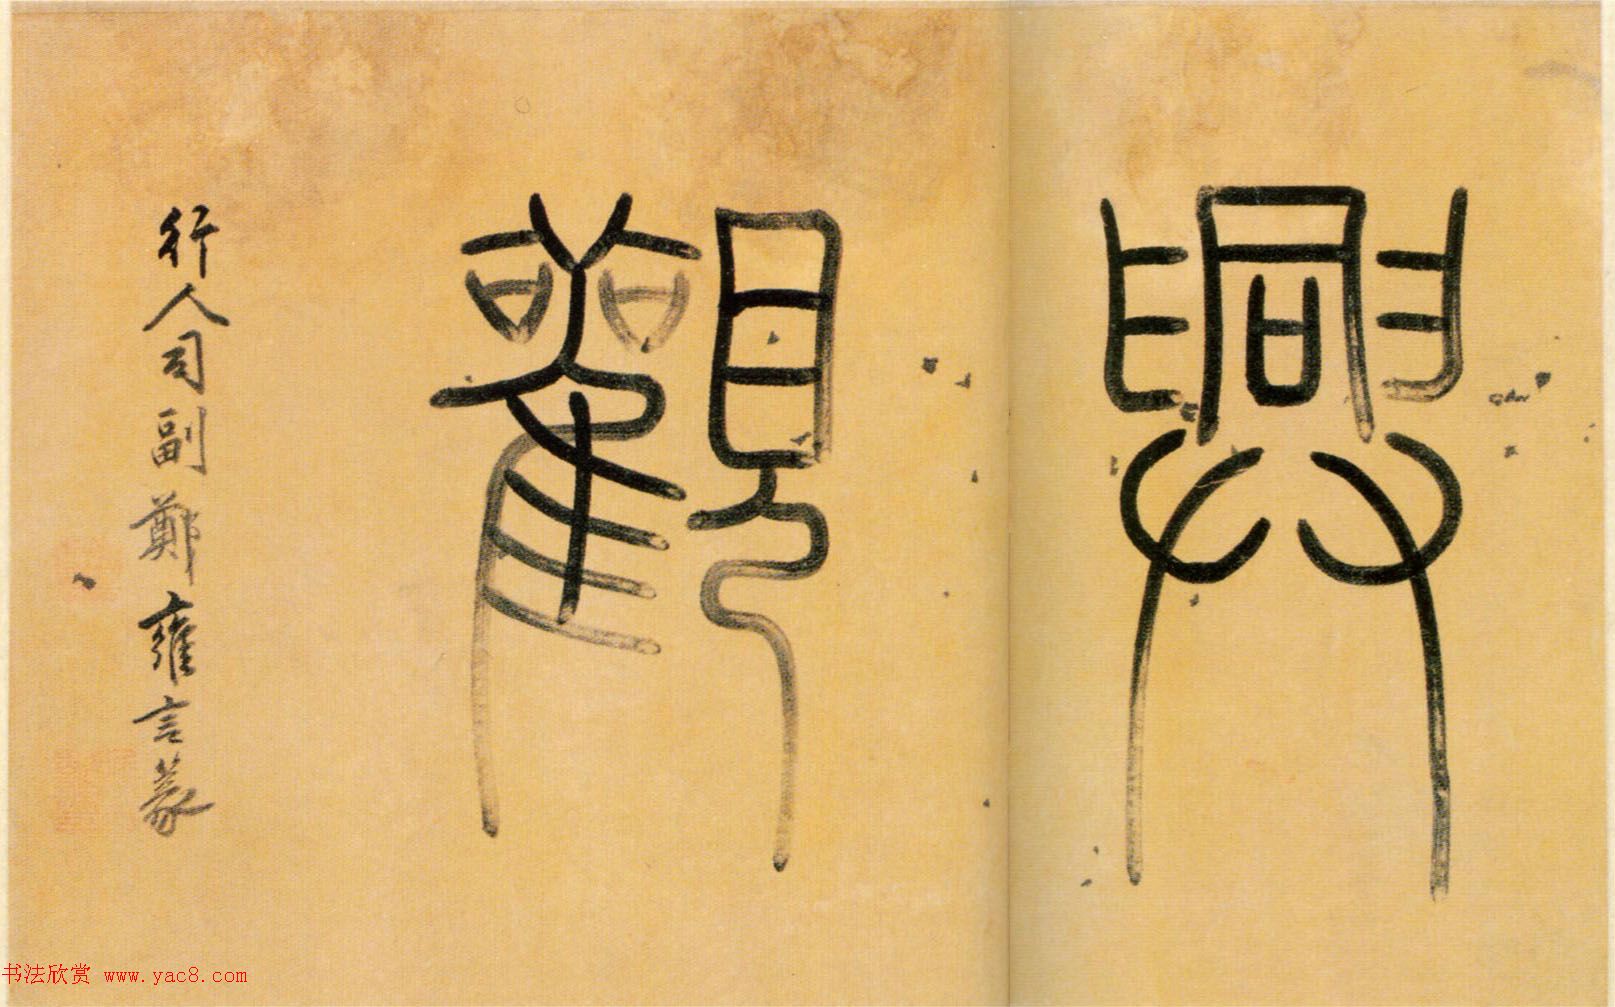 興觀
行人司副鄭雍言篆
书法欣赏 www.yac8.com